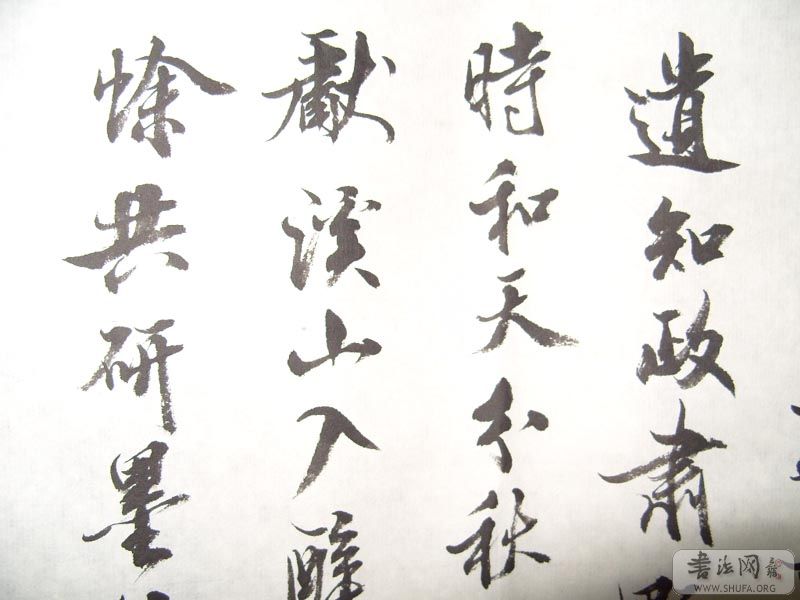 遺知政肅
時和天分秋
獻溪山入醉
共研墨
書法网
WWW.SHUFA.ORG